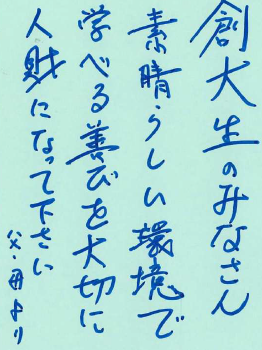 創大生のみなさん
素晴らしい環境で
学べる善びを大切に
人財になって下さい
父・母より